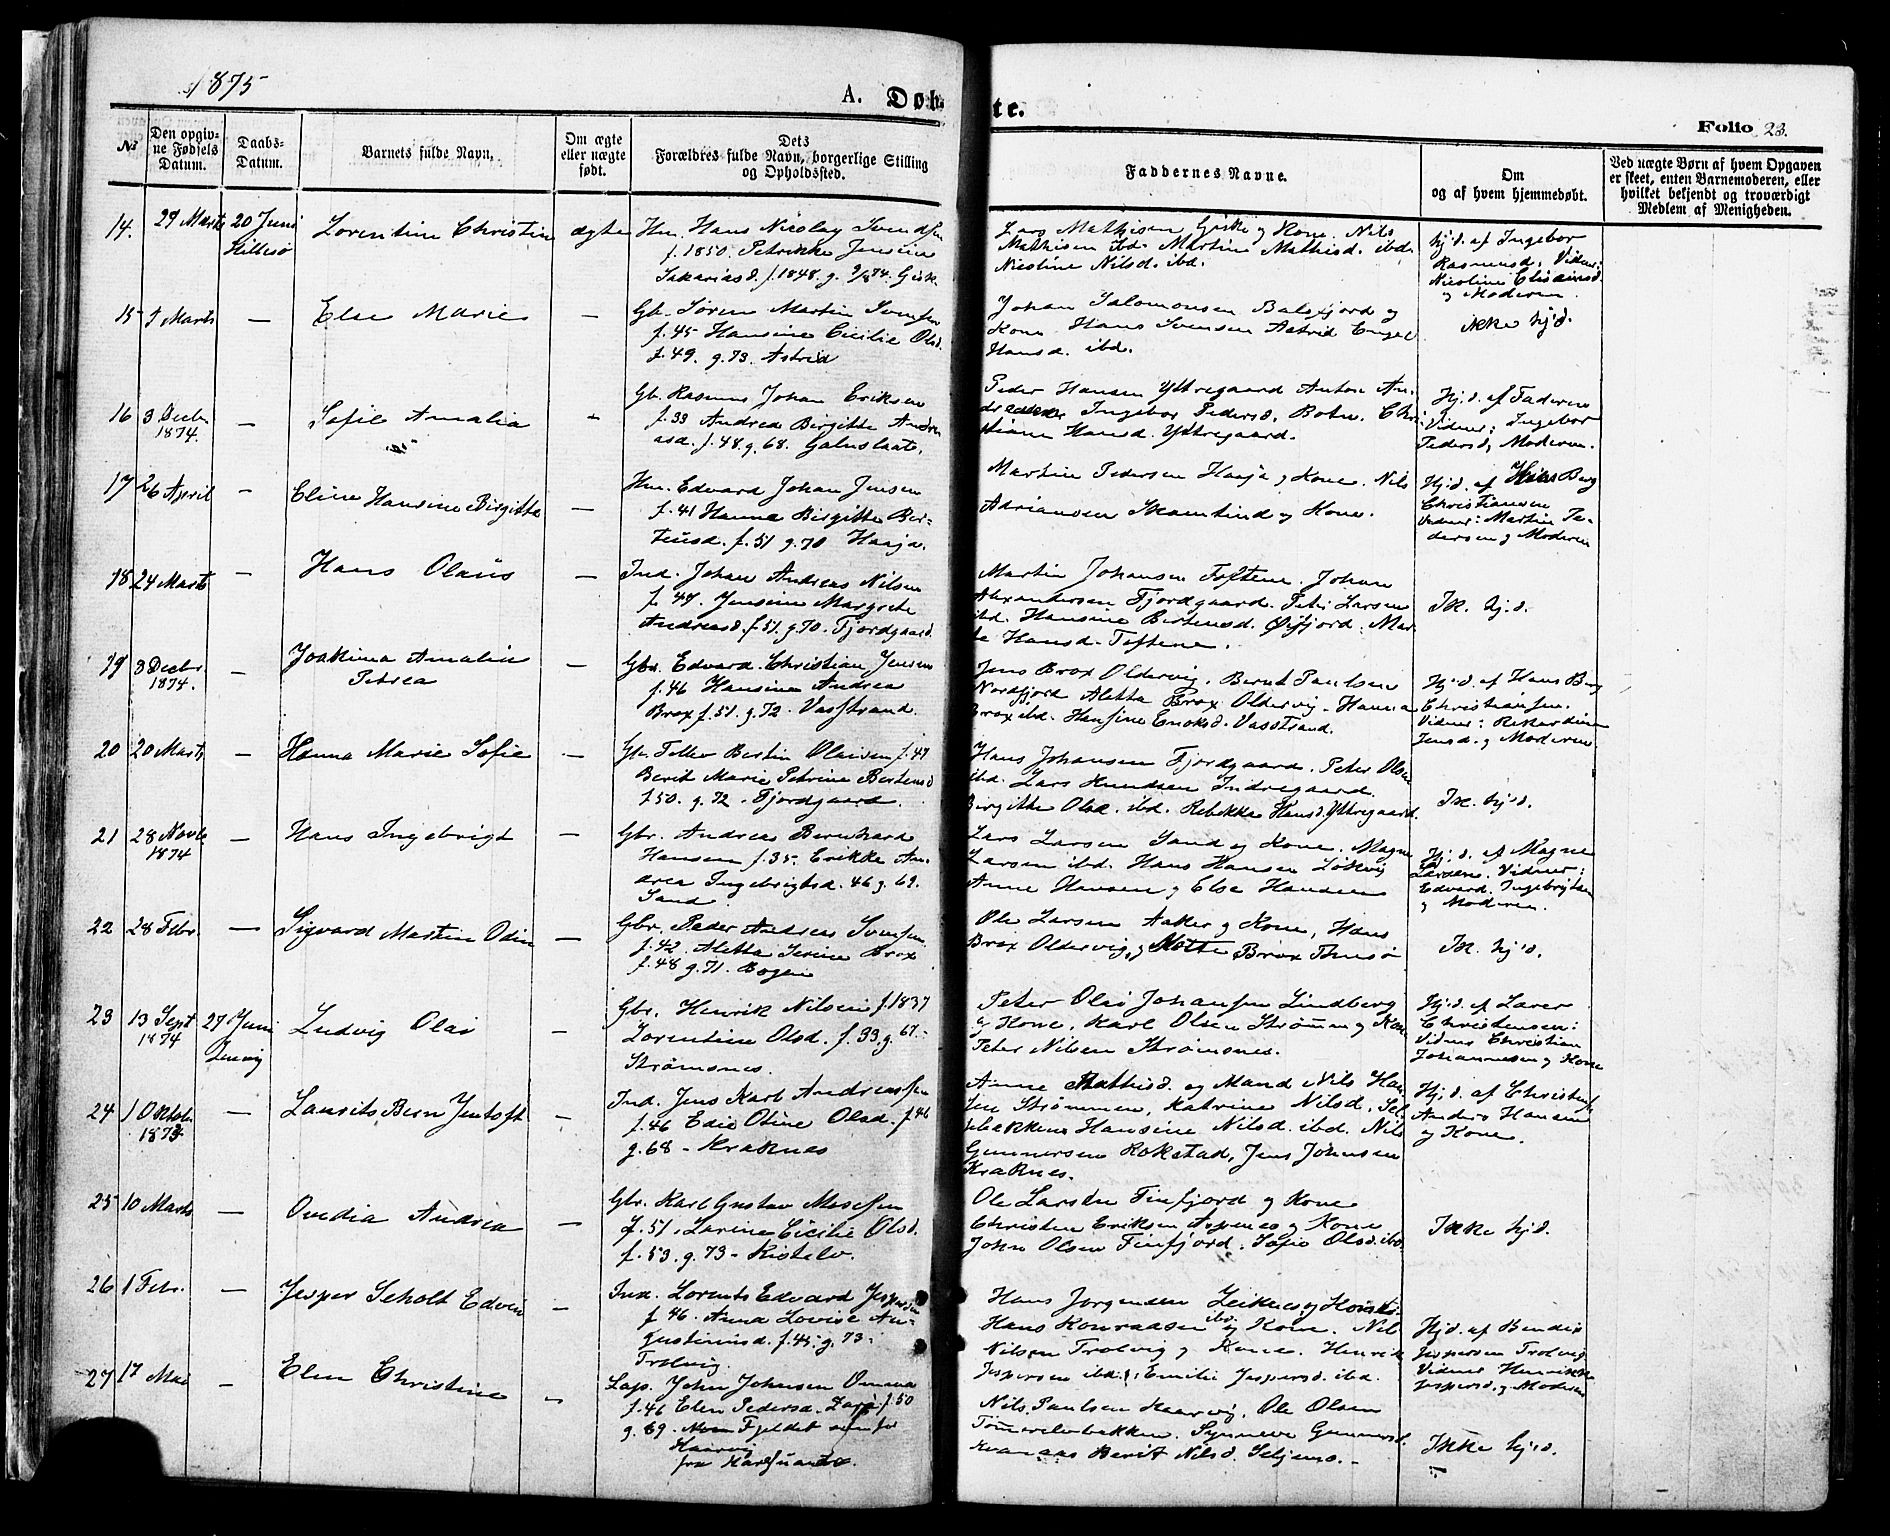 1875
A. Døb
te.
Folio 23.
No
Den opgivne Fødsels Datum.
Daabs-Datum.
Barnets fulde Navn.
Om ægte eller uægte født.
Dets Forældres fulde Navn, borgerlige Stilling og Opholdssted.
Faddernes Navne.
Om og af hvem hjemmedøbt.
Ved uægte Børn af hvem Opgaven er skeet, enten Barnemoderen, eller hvilket bekjendt og troværdigt Medlem af Menigheden.
14. 29 Marts 20 Juni Lorentine Christin ægte
Hm. Hans Nicolay Svendsen
f. 1850. Petrikke Jensine
Sakariasd. f. 1848. g. 74. Gisk.
Lars Mathisen Giske og Kone. Nils
Mathisen ibd. Martine Mathisd. ibd.
Nicoline Nilsd. ibd.
hj.d. af Ingebor
Rasmusd. Vidner:
Nicoline
og Moderen
15 Marts — Else Marie —
Gb. Søren Martin Svensen
f. 45 Hansine Cecilie Olsd.
f. 49. g. 73. Astrid
Johan Salomonsen Balsfjord og
Kone. Hans Svensen Astrid Engel
Hansd. ibd.
ikke hj.d.
16 3 Decbr 1874. — Sofie Amalia —
Gb. Rasmus Johan Eriksen
f. 33 Andrea Birgitte Andre
asd. f. 48 g. 68.
Peder Hansen Yttregaard Anton An-
Ingebor Pedersd. Botn. Chri
stiane Hansd. Yttregaard.
Hj.d. af Faderen
Vidner: Ingebor
Pedersd, Moderen.
17 26 April — Eline Hansine Birgitte —
Hm. Edvard Johan Jensen
f. 41 Hanna Birgitte Ber-
teusd. f. 51 g. 70 Haaja.
Martin Pedersen Haaja og Kone. Nils
Adriansen og Kone.
Hj.d. af Hans Berg
Christiansen
Vidner: Martin Pe-
dersen og Moderen
18 24 Marts — Hans Olaus —
Ind. Johan Andreas Nilsen
f. 44. Jensine Margrete
Andreasd. f. 51. g. 70. Fjordgaard.
Martin Johansen Toftene. Johan
Alexandersen Fjordgaard. Peter Larsen
ibd. Hansine Bertensd. Øifjord. Mar
Hansd. Toftene.
Ik. hj.d.
19 3 Decbr 1874. — Joakima Amalie
Petrea —
Gbr. Edvard Christian Jensen
f. 46 Hansine Andrea
Brox f. 51. g. 72 - Vasstrand.
Jens Brox Oldervig, Bernt Paulsen
Nordfjord Aletta Brox Oldervig. Hanna
Brox ibd. Hansine Enoksd. Vasstrand.
Hj.d. af Hans Berg
Christiansen.
Vidner: Rikardine
Jensd. og Moderen
20 20 Marts — Hanna Marie Sofie —
Gbr. Peder Bertin Olaisen f. 47
Berit Marie Petrine Bertensd
f. 50. g. 72 - Fjordgaard.
Hans Johansen Fjordgaard. Peter Olsen
ibd. Lars Knudsen Indregaard.
Birgitte Olsd. ibd. Rebekka Hansd. Yttregaard.
Ik. hj.d.
21 28 Novbr 1874 — Hans Ingebrigt —
Gbr. Andreas Bernhard
Hansen f. 35. Erikke An-
drea Ingebrigtsd. 46 g. 69.
Sand.
Lars Larsen Sand og Kone. Magne
Larsen ibd. Hans Hansen Løkvig
Anne Hansen og Else Hansen
Hj.d. af Magne
Larsen. Vidner:
Edvard Ingebrigtsen
og Moderen.
22 28 Febr. — Sigvard Martin Odin —
Gbr. Peder Andreas Svensen
f. 42. Aletta Serine Brox
f. 48 g. 71. Bogen
Ole Larsen Aaker og Kone, Hans
Brox Oldervig, og Mette Brox
Ik. hj.d.
23 13 Sept 1874 27 Juni Ludvig Olai —
Gbr. Henrik Nilsen f. 1837
Lorentine Olsd. f. 33. g. 67.
Strømsnes.
Peter Olai Johansen Lindberg
og Kone, Karl Olsen Strømm og Kone
Peter Nilsen Strømsnes.
Hj.d. af Lærer
Christensen:
Vidner Christian
Johannesen og Kone
24 1 Oktober — Laurits Bern Jentoft —
Ind. Jens Karl Andreassen
f. 46 Edie Otine Olsd. f. 46
g. 68 - Kraknes
Anne Mathisd. og Mand Nils Han
sen Strømmen, Katrine Nilsd. Sel
jebakken Hansine Nilsd. ibd. Nils
Gunnersen Rokstad, Jens Johnsen
Kraknes.
Hj.d. af Christens
Anders Hansen
og Kone.
25 10 Marts — Ovedia Andrea —
Gbr. Karl Gustav Mosesen
f. 51. Larine Cicilie Olsd.
f. 53. g. 73 - Kistelv.
Ole Larsen Finfjord og Kone
Christen Eriksen Aspenes og Kone
John Olsen Finfjord. Sofie Olsd. ibd.
Ikke hj.d.
26 1 Febr. — Jesper Scholt Edvin —
Ind. Lorents Edvard Jespersen
f 46. Anna Lovise Au-
gustinusd. f. 45 g. 73.
Trolvig.
Hans Jørgensen Leiknes og Kone
Hans Konradsen ibd og Kone. Nils
Nilsen Trolvig og Kone. Henrik
Jespersen ibd. Emilie Jespersd. ibd.
Hj.d. af Bendix
Jespersen Trolvig
Vidner Henrikke
Jespersd. og Moderen
27 17 Mai — Elen Christine —
Lap. John Johnsen Omma
f. 46 Elen Pedersd. f. 50
g. 69. Fjeldet
fra Karesuando.
Nils Paulsen Kaarvig, Ole Olsen
Tømmerelvbakken. Synneve Gunnersd.
Berit Nilsd.
Ikke hj.d.